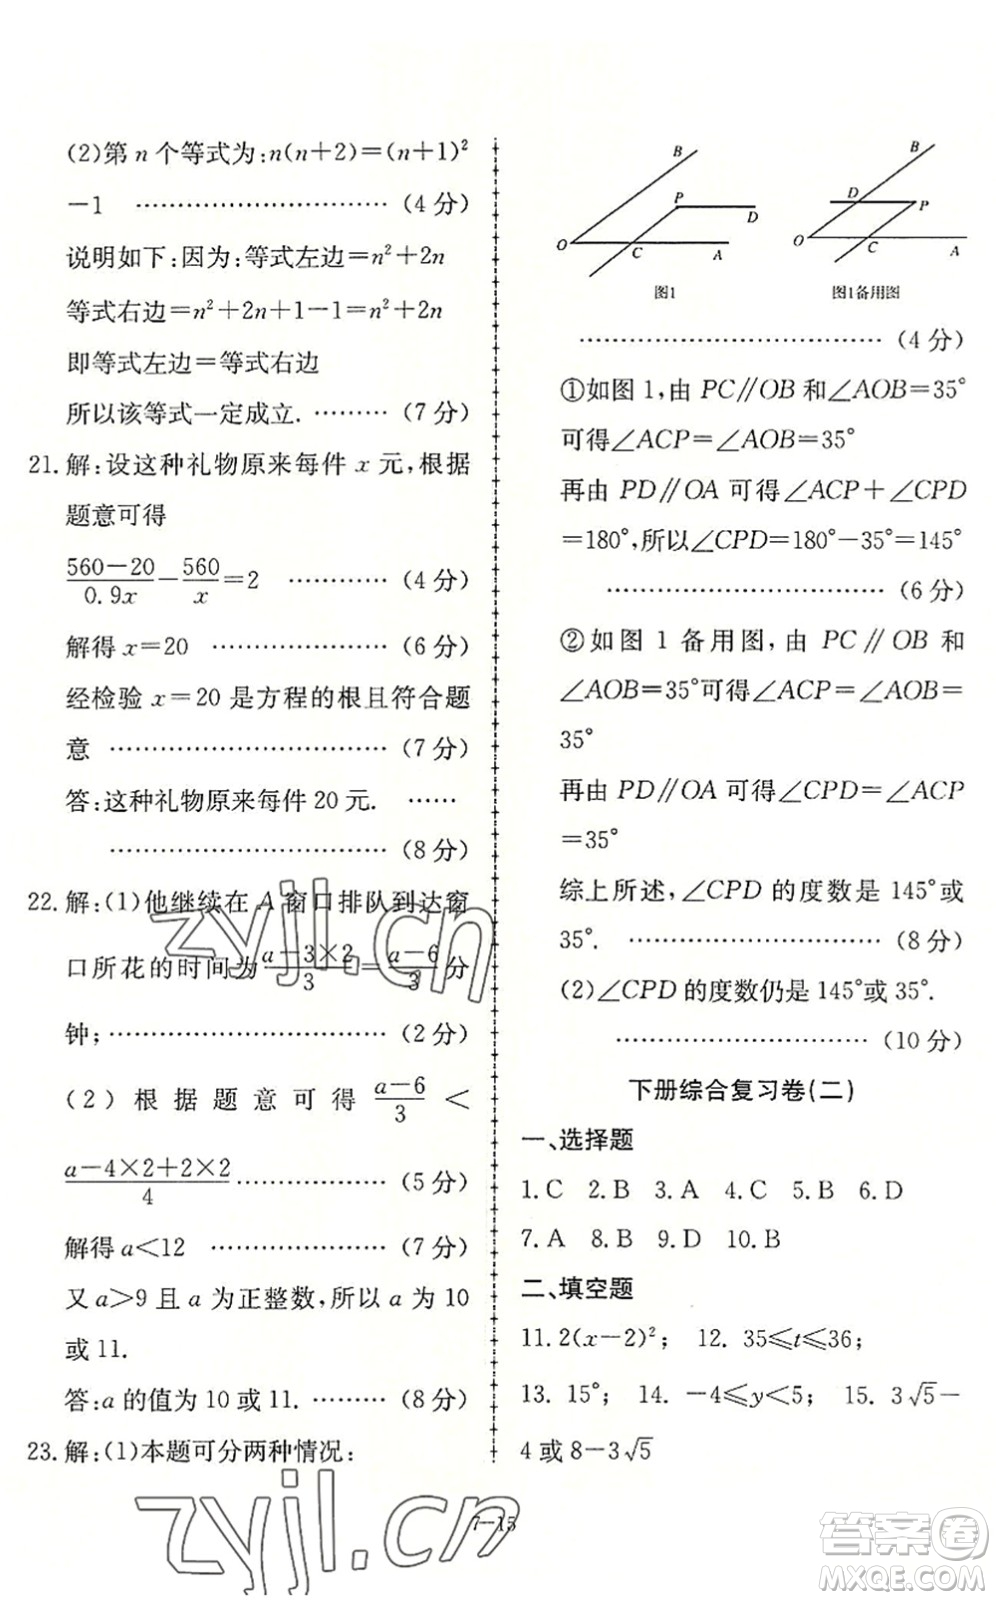 (2)第 n 个等式为:n(n+2)=(n+1)²
-1 ………………………… (4 分)
说明如下:因为:等式左边=n²+2n
等式右边=n²+2n+1-1=n²+2n
即等式左边=等式右边
所以该等式一定成立. ……… (7 分)
21. 解:设这种礼物原来每件 x 元,根据
题意可得
(560-20)/0.9x - 560/x = 2 ………… (4 分)
解得 x=20 ………………… (6 分)
经检验 x=20 是方程的根且符合题
意 …………………………… (7 分)
答:这种礼物原来每件 20 元. ……
…………………………… (8 分)
22. 解:(1)他继续在 A 窗口排队到达窗
口所花的时间为 (a-3×2)/3 = (a-6)/3 分
钟; …………………………… (2 分)
(2) 根据题意可得 (a-6)/3 <
(a-4×2+2×2)/4 ……………… (5 分)
解得 a<12 ………………… (7 分)
又 a>9 且 a 为正整数,所以 a 为 10
或 11.
答:a 的值为 10 或 11. ……… (8 分)
23. 解:(1)本题可分两种情况:
B
P
D
O
C
A
图1
B
D
P
O
C
A
图1备用图
……………………………… (4 分)
①如图 1,由 PC∥OB 和∠AOB=35°
可得∠ACP=∠AOB=35°
再由 PD∥OA 可得∠ACP+∠CPD
=180°,所以∠CPD=180°-35°=145°
…………………………… (6 分)
②如图 1 备用图,由 PC∥OB 和
∠AOB=35°可得∠ACP=∠AOB=
35°
再由 PD∥OA 可得∠CPD=∠ACP
=35°
综上所述,∠CPD 的度数是 145°或
35°. ………………………… (8 分)
(2)∠CPD 的度数仍是 145°或 35°.
………………………… (10 分)
下册综合复习卷(二)
一、选择题
1. C 2. B 3. A 4. C 5. B 6. D
7. A 8. B 9. D 10. B
二、填空题
11. 2(x-2)²; 12. 35≤t≤36;
13. 15°; 14. -4≤y<5; 15. 3√5-
4 或 8-3√5
7-15
zyjl.cn
zyjl.cn
答案卷
MXQE.COM